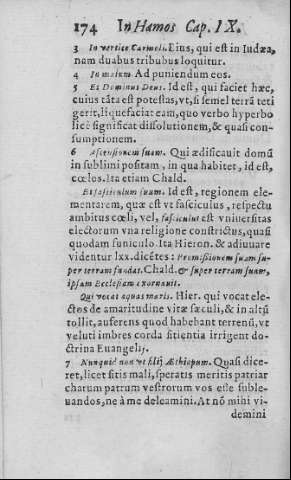 174 In Hamos Cap. IX.
3 In vertice Carmeli. Eius, qui est in Iudæa,
nam duabus tribubus loquitur.
4 In malum. Ad puniendum eos.
5 Et Dominus Deus. Id est, qui faciet hæc,
cuius tāta est potestas, vt, si semel terrā teti
gerit, liquefaciat eam, quo verbo hyperbo
licè significat dissolutionem, & quasi con-
sumptionem.
6 Ascensionem suam. Qui ædificauit domū
in sublimi positam, in qua habitet, id est,
cœlos. Ita etiam Chald.
Et fasciculum suum. Id est, regionem ele-
mentarem, quæ est vt fasciculus, respectu
ambitus cœli, vel, fasciculus est vniuersitas
electorum vna religione constrictus, quasi
quodam funiculo. Ita Hieron. & adiuuare
videntur lxx. dicētes: Promissionem suam su-
per terram fundat. Chald. & super terram suam,
ipsam Ecclesiam exornauit.
Qui vocat aquas maris. Hier. qui vocat ele-
ctos de amaritudine vitæ sæculi, & in altū
tollit, auferens quod habebant terrenū, vt
veluti imbres corda sitientia irrigent do-
ctrina Euangelij.
7 Nunquid non vt filij Æthiopum. Quasi dice-
ret, licet sitis mali, speratis meritis patriar
charum patrum vestrorum vos esse suble-
uandos, ne à me deleamini. At nō mini vi-
demini